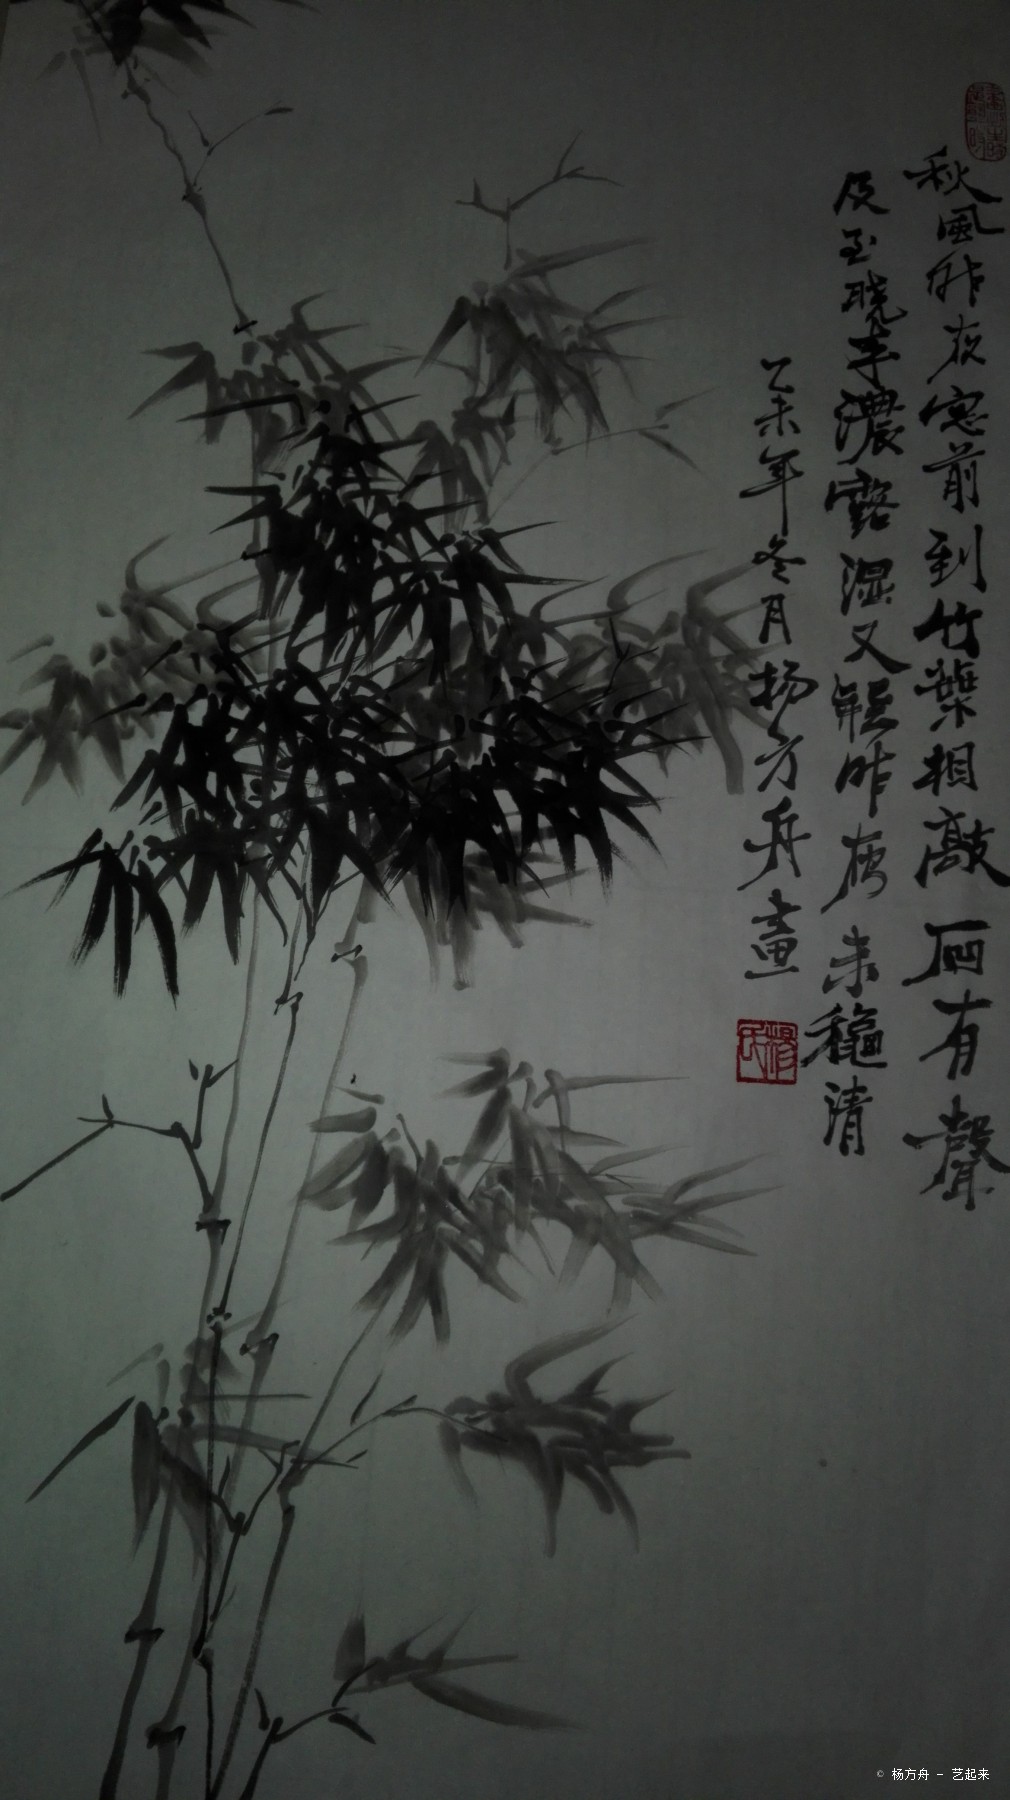 秋風昨夜窓前到竹葉相敲有聲
及至曉濃露湿又疑昨夜未穐清
乙未年冬月楊方舟畫
楊氏
© 杨方舟 - 艺起来